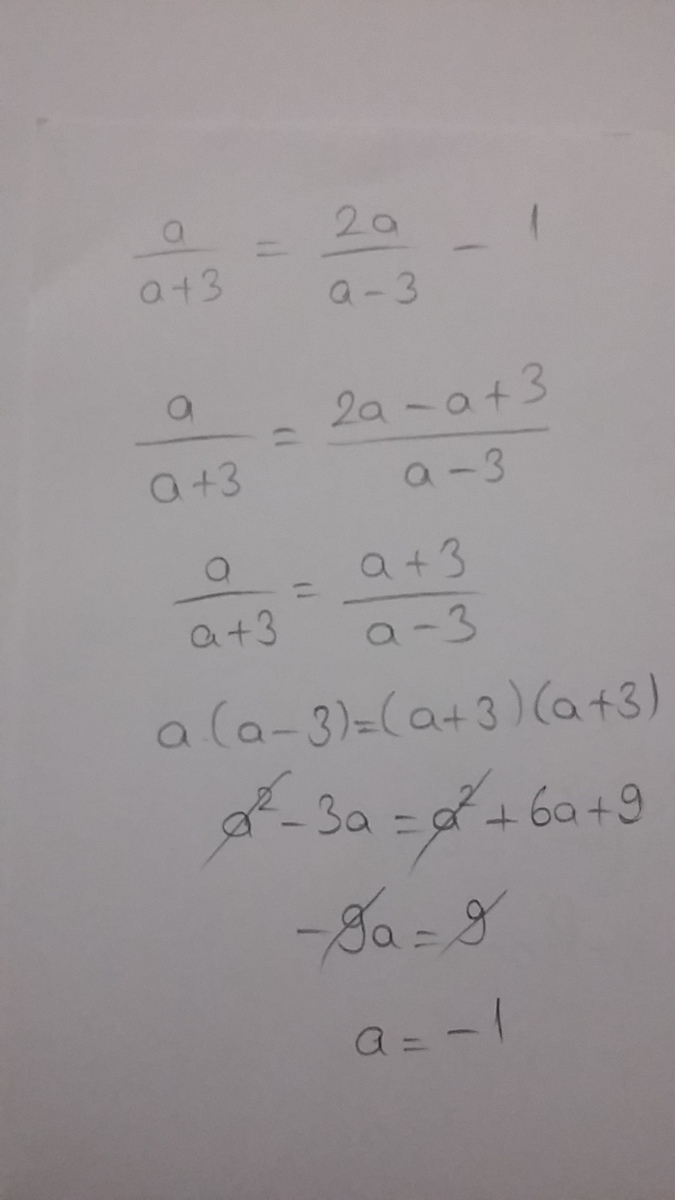 a/(a+3) = 2a/(a-3) - 1
a/(a+3) = (2a-a+3)/(a-3)
a/(a+3) = (a+3)/(a-3)
a.(a-3)=(a+3)(a+3)
a²-3a=a²+6a+9
-9a=9
a=-1